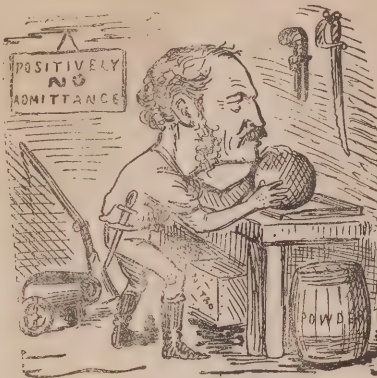 POSITIVELY
NO
ADMITTANCE
POWDER